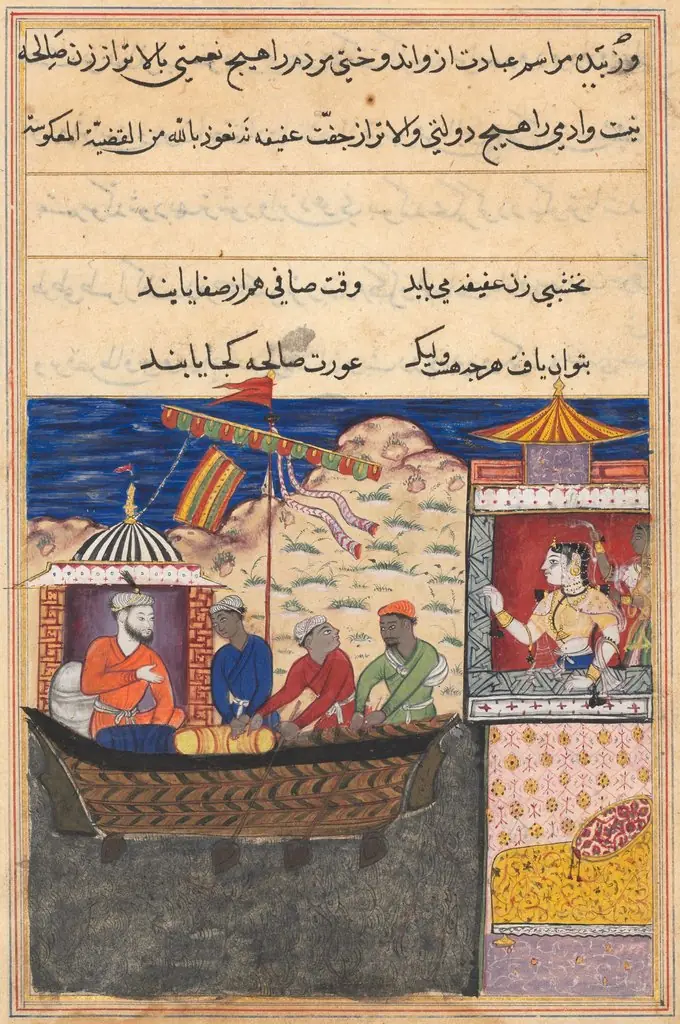 مراسم عبادت ازو اندوختی مردم را هیچ نعمتی بالاتر از زن صالحه
نیست وادمی را هیچ دولتی والاتر از جفت عفیفه نه نعوذ بالله من القضیة المعکوسة
نخشبی زن عفیفه می باید وقت صافی هم از صفا یابند
بتوان یافت هرچه هست ولیک عورت صالحه کجا یابند